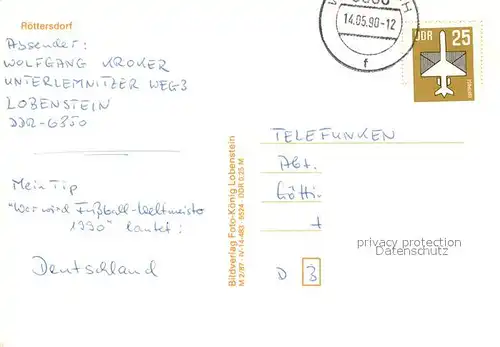 Röttersdorf
Absender:
WOLFGANG KROKER
UNTERLEMNITZER WEG 3
LOBENSTEIN
DDR-6850
Mein Tip
"Wer wird Fußball-Weltmeister
1990" lautet:
Deutschland
Bildverlag Foto-König Lobenstein
M 2/87 · IV-14-483 · 6524 DDR 0,25 M
14.05.90-12
f
DDR 25
TELEFUNKEN
Abt.
Götti
D 3
privacy protection
Datenschutz